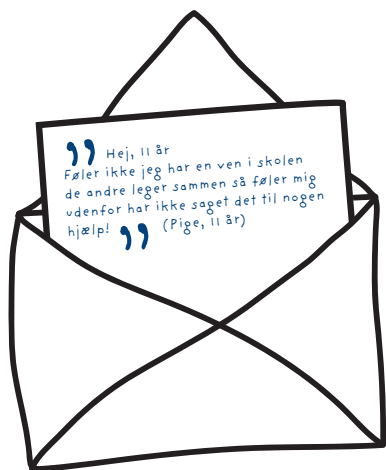 ” Hej, 11 år
Føler ikke jeg har en ven i skolen
de andre leger sammen så føler mig
udenfor har ikke saget det til nogen
hjælp! ” (Pige, 11 år)